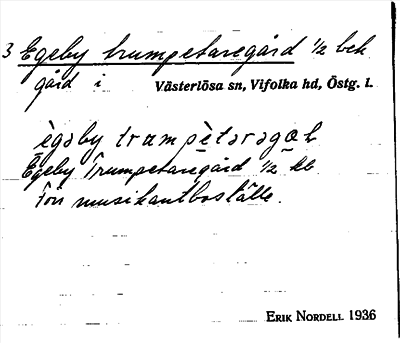 3 Egeby trumpetaregård 1/2 bek
gård i Västerlösa sn, Vifolka hd, Östg. l.
ègəby trumpètarəgo̲l
Egeby Trumpetaregård 1/2 kb
Förr musikantboställe.
ERIK NORDELL 1936